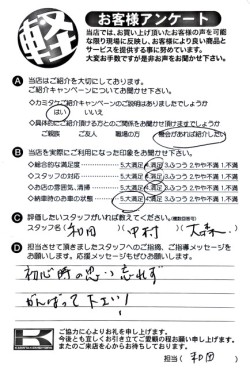 軽
お客様アンケート
当店では、お買い上げ頂いたお客様の声を可能
な限り現場に反映し、お客様により良い商品と
サービスを提供する事に努めています。
大変お手数ですが是非お声をお聞かせ下さい。
A 当店はご紹介を大切にしております。
ご紹介キャンペーンについてお聞かせ下さい。
◇カミタケご紹介キャンペーンのご説明はありましたでしょうか
はい いいえ
◇具体的にご紹介頂ける方とのご関係をお聞かせ頂けますでしょうか
ご親族 ご友人 職場の方 機会があれば紹介したい
B 当店を実際にご利用になった印象をお聞かせ下さい。
◇総合的な満足度 5.大満足 4.満足 3.ふつう 2.やや不満 1.不満
◇スタッフの対応 5.大満足 4.満足 3.ふつう 2.やや不満 1.不満
◇お店の雰囲気、清掃 5.大満足 4.満足 3.ふつう 2.やや不満 1.不満
◇納車時のお車の状態 5.大満足 4.満足 3.ふつう 2.やや不満 1.不満
C 評価したいスタッフがいれば教えてください。(複数回答可)
スタッフ名( 和田 )( 中村 )( 大森 )
D 担当させて頂きましたスタッフへのご指摘、ご指導メッセージを
お願いします。応援メッセージもぜひお願いします。
初心時の思い忘れず
がんばって下さい!
K
ご協力に心よりお礼を申し上げます。
今後とも宜しくお引き立てご愛顧の程お願い申し上げます。
またのご来店を心からお待ちしております。
担当( 和田 )